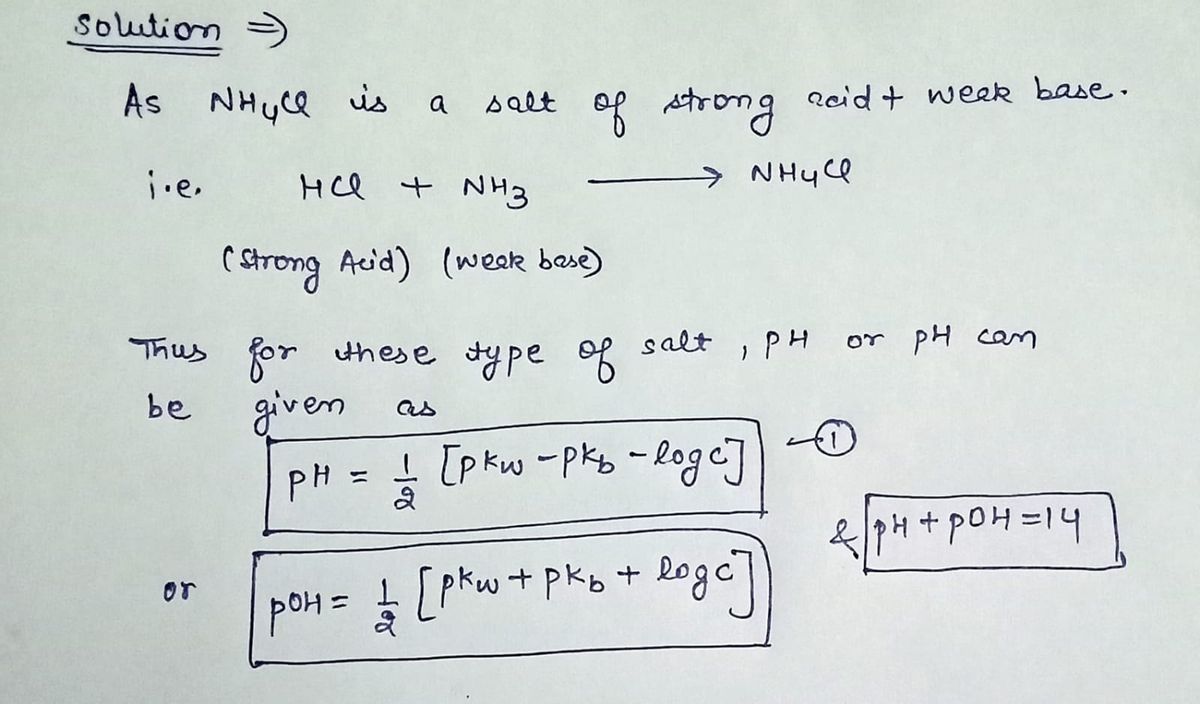 Solution ⇒
As NH4Cl is a salt of strong acid + weak base.
i.e. HCl + NH3 ⟶ NH4Cl
(Strong Acid) (weak base)
Thus for these type of salt, pH or pH can
be given as
pH = 1/2 [pKw - pKb - log c] —①
& pH + pOH = 14
or pOH = 1/2 [pKw + pKb + log c]